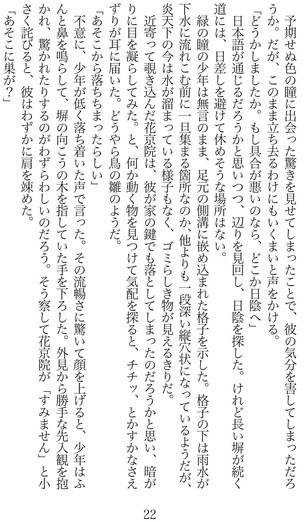 予期せぬ色の瞳に出会った驚きを見せてしまったことで、彼の気分を害してしまっただろ
うか。だが、このまま立ち去るわけにもいくまいと声をかける。
「どうかしましたか。もし具合が悪いのなら、どこか日陰へ」
日本語が通じるだろうかと思いつつ、辺りを見回し、日陰を探した。けれど長い塀が続く
道には、日差しを避けて休めそうな場所はない。
緑の瞳の少年は無言のまま、足元の側溝に嵌め込まれた格子を示した。格子の下は雨水が
下水に流れこむ前に一旦集まる箇所なのか、他よりも一段深い縦穴状になっているようだが、
炎天下の今は水が溜まっている様子もなく、ゴミらしき物が見えるきりだ。
近寄って覗き込んだ花京院は、彼が家の鍵でも落としてしまったのだろうかと思い、暗が
りに目を凝らしてみた。と、何か動く物を見つけて気配を探ると、チチッ、とかすかなさえ
ずりが耳に届いた。どうやら鳥の雛のようだ。
「あそこから落ちちまったらしい」
不意に、少年が低く落ち着いた声で言った。その流暢さに驚いて顔を上げると、少年はふ
んと鼻を鳴らして、塀の向こうの木を指していた手を下ろした。外見から勝手な先入観を抱
かれ、驚かれたりするのがわずらわしいのだろう。そう察して花京院が「すみません」と小
さく詫びると、彼はわずかに肩を竦めた。
「あそこに巣が？」
22